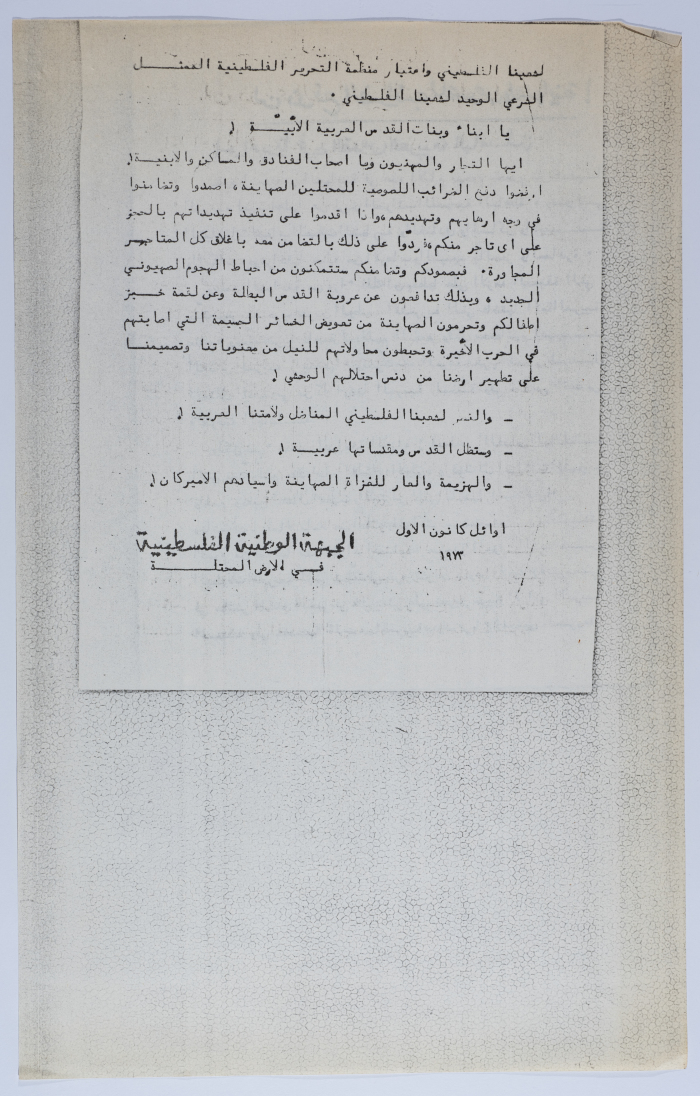 لشعبنا الفلسطيني واعتبار منظمة التحرير الفلسطينية الممثـــل
الشرعي الوحيد لشعبنا الفلسطيني .
يا ابناء وبنات القدس العربية الأبيّـــة !
ايها التجار والمهنيون ويا اصحاب الفنادق والمساكن والابنية !
ارفضوا دفع الضرائب اللصوصية للمحتلين الصهاينة ، اصمدوا وتضامنوا
في وجه ارهابهم وتهديدهم ، واذا اقدموا على تنفيذ تهديداتهم بالحجز
على اى تاجر منكم ، فردّوا على ذلك بالتضامن معه باغلاق كل المتاجــر
المجاورة . فبصمودكم وتضامنكم ستتمكنون من احباط الهجوم الصهيونـي
الجديد ، وبذلك تدافعون عن عروبة القدس البطلة وعن لقمة خـــبز
اطفالكم وتحرمون الصهاينة من تعويض الخسائر الجسيمة التي اصابتهم
في الحرب الأخيرة وتحبطون محاولاتهم للنيل من معنوياتنا وتصميمنـــا
على تطهير ارضنا من دنس احتلالهم الوحشي !
ــ والنصر لشعبنا الفلسطيني المناضل ولأمتنا العربية !
ــ وستظل القدس ومقدساتها عربيـــة !
ــ والهزيمة والعار للغزاة الصهاينة واسيادهم الاميركان !
اوائل كانون الاول
١٩٧٣
الجبهة الوطنية الفلسطينية
فـــي الارض المحتلـــــة